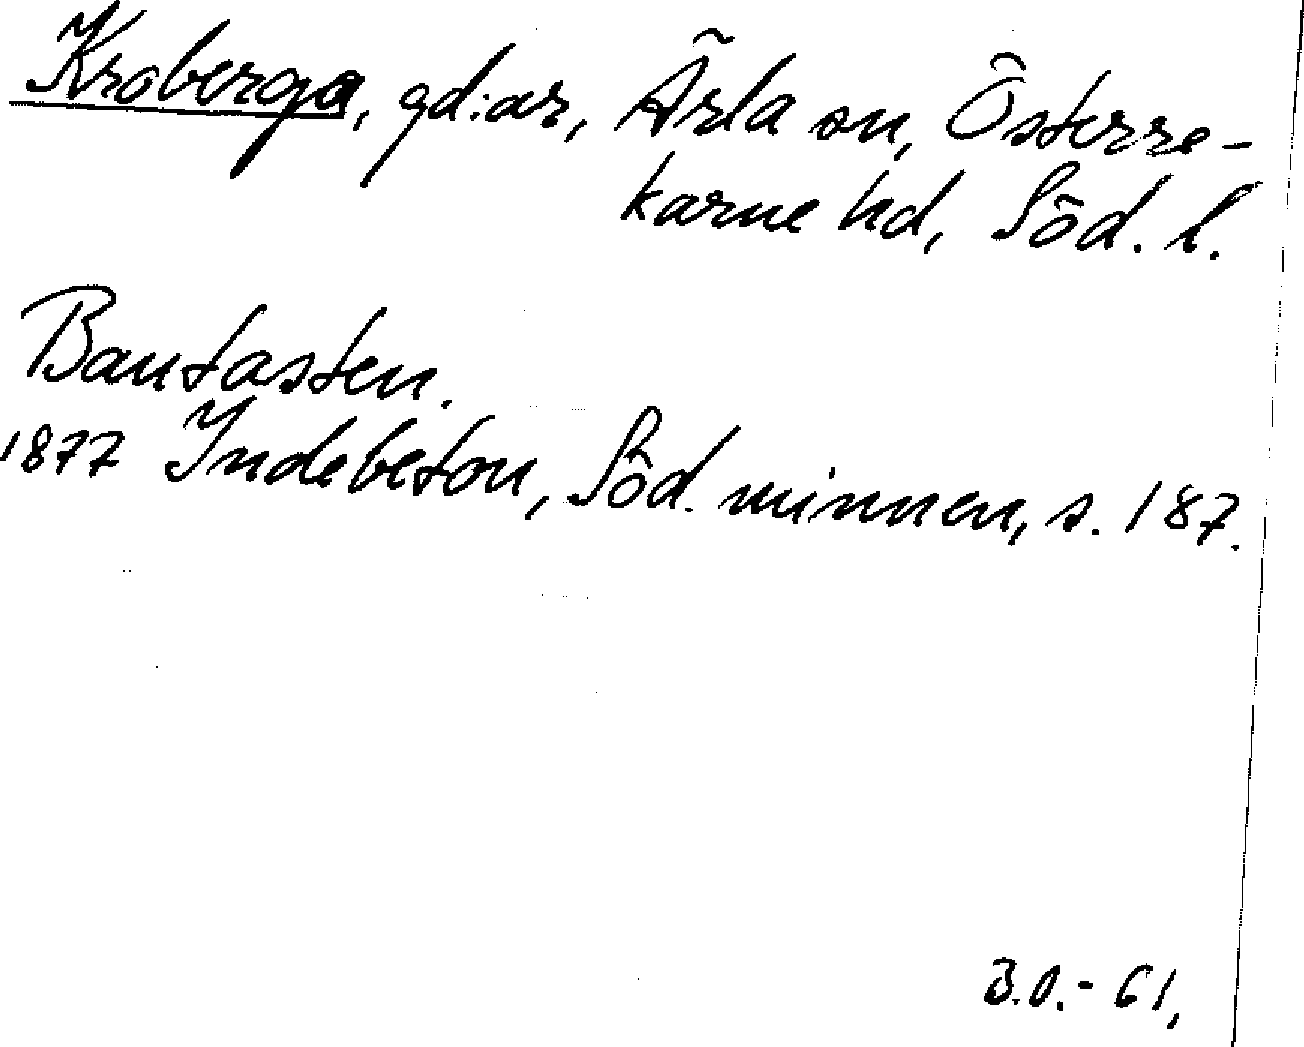 Kroberga, gd:ar, Ärla sn, Österre-
karne hd, Söd. l.
Bautasten.
1877 Indebetou, Söd. minnen, s. 187.
B.O.- 61,